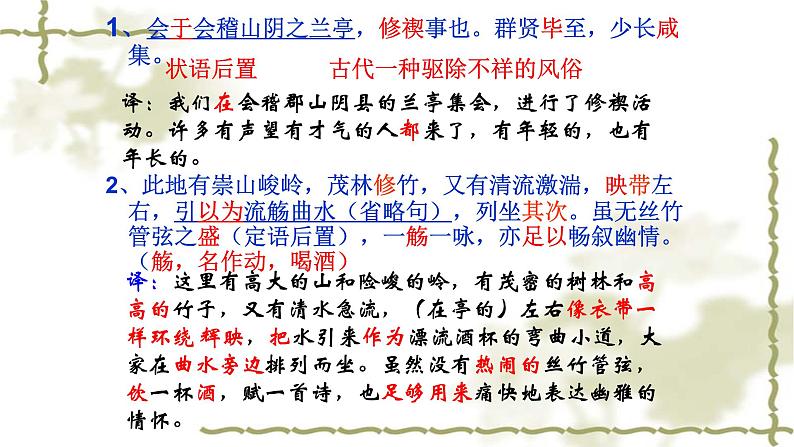 1、会于会稽山阴之兰亭，修禊事也。群贤毕至，少长咸
集。
状语后置 古代一种驱除不祥的风俗
译：我们在会稽郡山阴县的兰亭集会，进行了修禊活
动。许多有声望有才气的人都来了，有年轻的，也有
年长的。
2、此地有崇山峻岭，茂林修竹，又有清流激湍，映带左
右，引以为流觞曲水（省略句），列坐其次。虽无丝竹
管弦之盛（定语后置），一觞一咏，亦足以畅叙幽情。
（觞，名作动，喝酒）
译：这里有高大的山和险峻的岭，有茂密的树林和高
高的竹子，又有清水急流，（在亭的）左右像衣带一
样环绕辉映，把水引来作为漂流酒杯的弯曲小道，大
家在曲水旁边排列而坐。虽然没有热闹的丝竹管弦，
饮一杯酒，赋一首诗，也足够用来痛快地表达幽雅的
情怀。